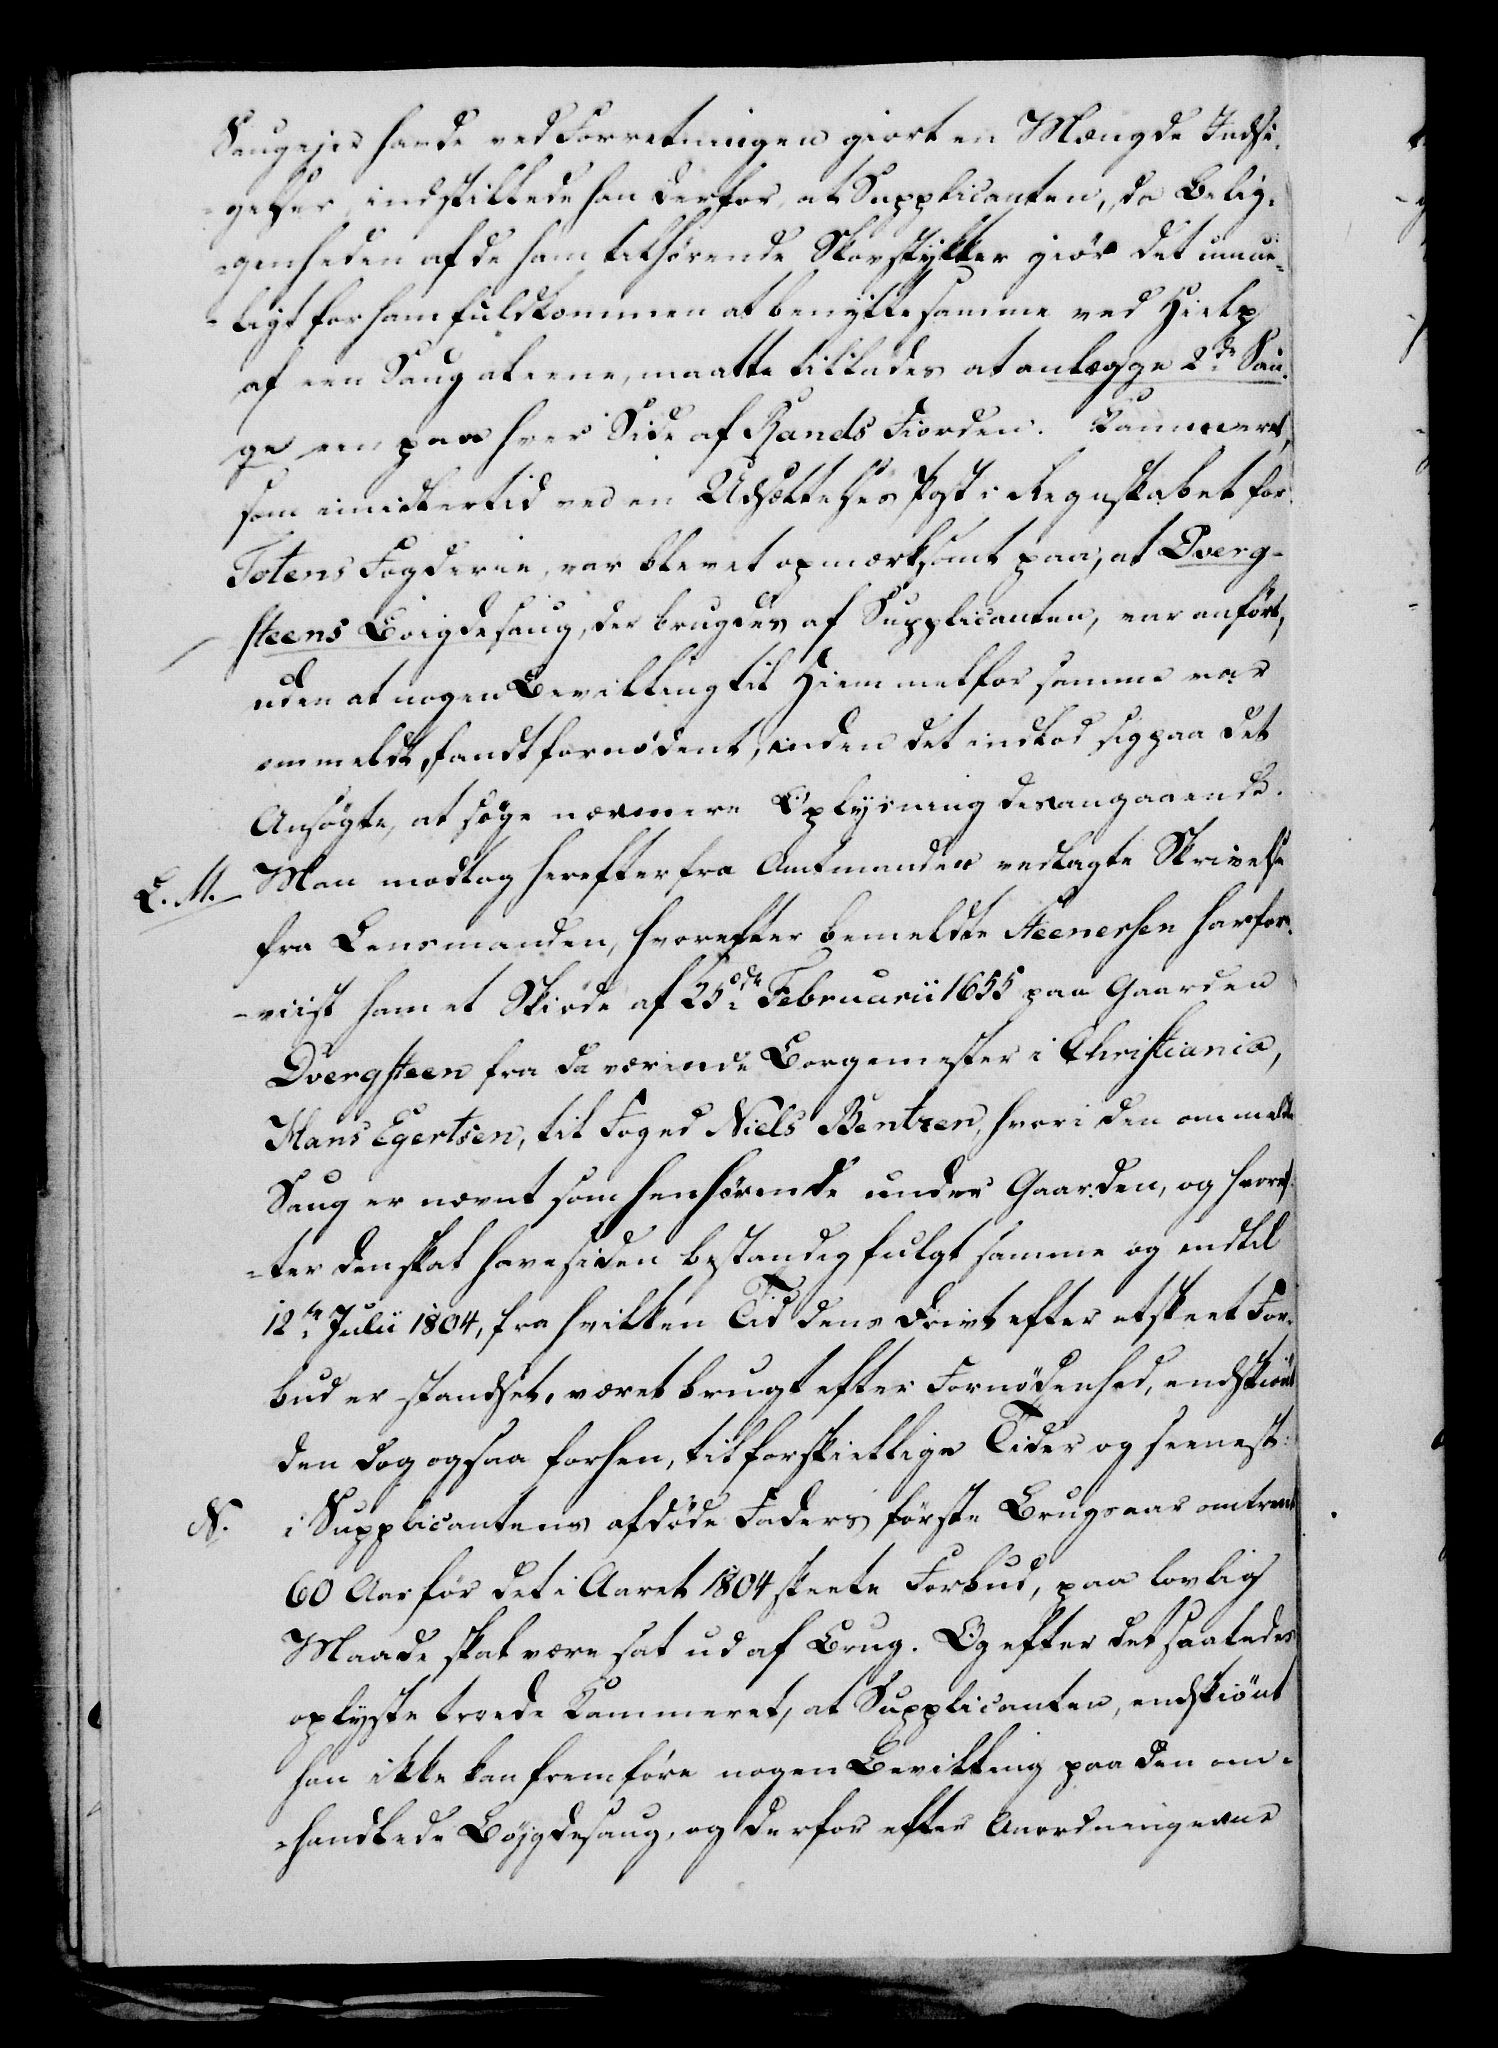 Saugejer havde ved Forretningen giort en Mængde Indsi-
-gelser, indstillede han derfor, at Supplicanten, da Belig-
-genheden af de ham tilhörende Skovstykker giör det umue-
-ligt for ham fuldkommen at benytte samme ved Hielp
af een Saug alene, maatte tillades at anlægge 2de Sau-
ge een paa hver Side af Rands Fiorden. Kammeret,
som imidlertid ved en Udsættelses Post i Regnskabet for
Totens Fogderie, var blevet opmærksomt paa, at Dverg-
steens Böigdesaug, der brugdes af Supplicanten, var anfört,
uden at nogen Bevilling til Hiemmel for samme var
ommeldt, fandt fornödent, inden det indlod sig paa det
Ansögte, at söge nærmere Oplysning desangaaende.
L. M. Man modtog herefter fra Amtmanden vedlagte Skrivelse
fra Lensmanden, hvorefter bemeldte Steenersen har fore-
-viist ham et Skiöde af 25de Februarii 1655 paa Gaarden
Dvergsteen fra da værende Borgemester i Christiania,
Hans Egertsen, til Foged Niels Bentzen, hvori den ommeldte
Saug er nævnt som henhörende under Gaarden, og hvoref-
-ter den skal have siden bestandig fulgt samme og indtil
12te Julii 1804, fra hvilken Tid dens Drivt efter et skeet For-
bud er standset, været brugt efter Fornödenhed, endskiönt
den dog ogsaa forhen, til forskiellige Tider og seenest
N. i Supplicantens afdöde Faders förste Brugsaar omtrent
60 Aar för det i Aaret 1804 skeete Forbud, paa lovlig
Maade skal være sat ud af Brug. Og efter det saaledes
oplyste troede Kammeret, at Supplicanten, endskiönt
han ikke kan fremföre nogen Bevilling paa den om-
-handlede Böjgdesaug, og derfor efter Anordningerne